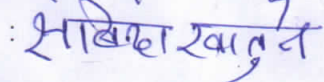 : साबिदा खातुन